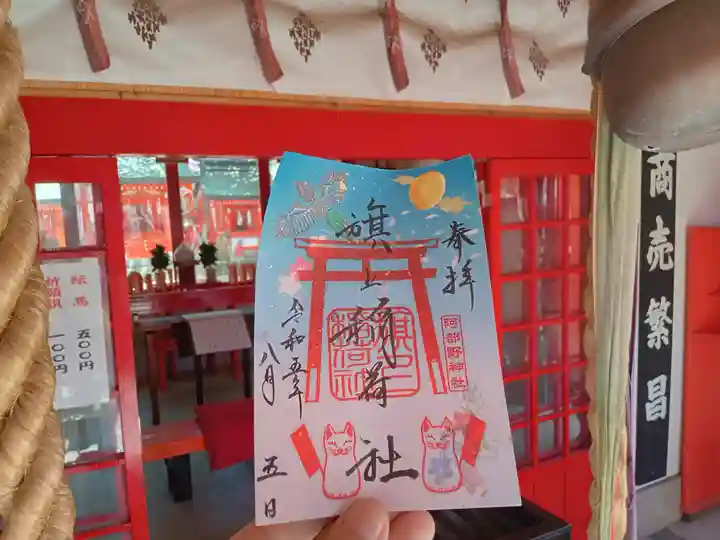 奉拝
旗上稲荷社
令和五年
八月
五日
阿部野神社
商売繁昌
絵馬 五〇〇円
祈願旗 一〇〇円